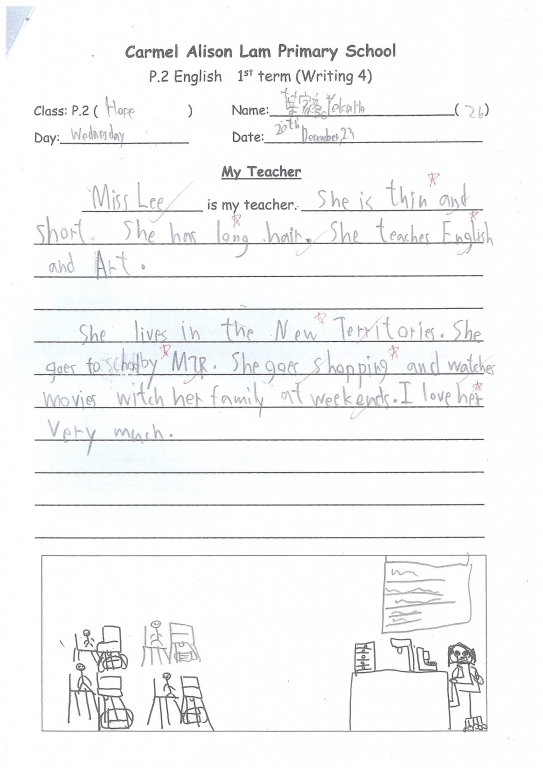 Carmel Alison Lam Primary School
P.2 English 1st term (Writing 4)
Class: P.2 ( Hope ) Name: ( 26 )
Day: Wednesday Date: 20th December, 23
My Teacher
Miss Lee is my teacher. She is thin and
short. She has long hair. She teaches English
and Art.
She lives in the New Territories. She
goes to school by MTR. She goes shopping and watches
movies witch her family at weekends. I love her
very much.